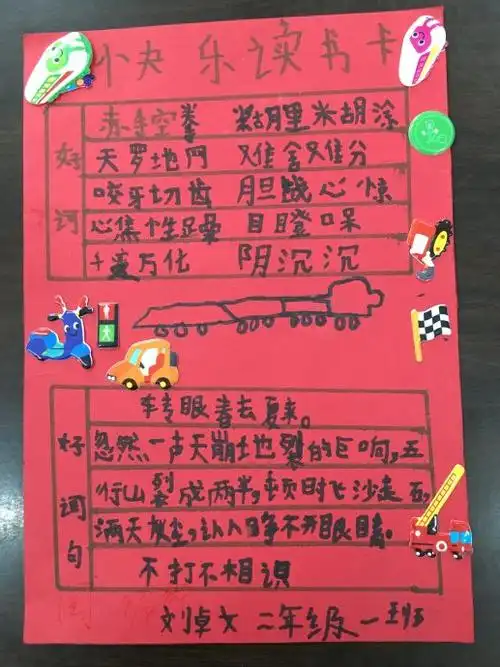 快乐读书卡
好词
赤手空拳 糊里糊涂
天罗地网 难舍难分
咬牙切齿 胆战心惊
心焦性躁 目瞪口呆
千变万化 阴沉沉
好词句
转眼春去夏来。
忽然一声天崩地裂的巨响,五
行山裂成两半,顿时飞沙走石,
满天灰尘,让人睁不开眼睛。
不打不相识
刘卓文 二年级一班